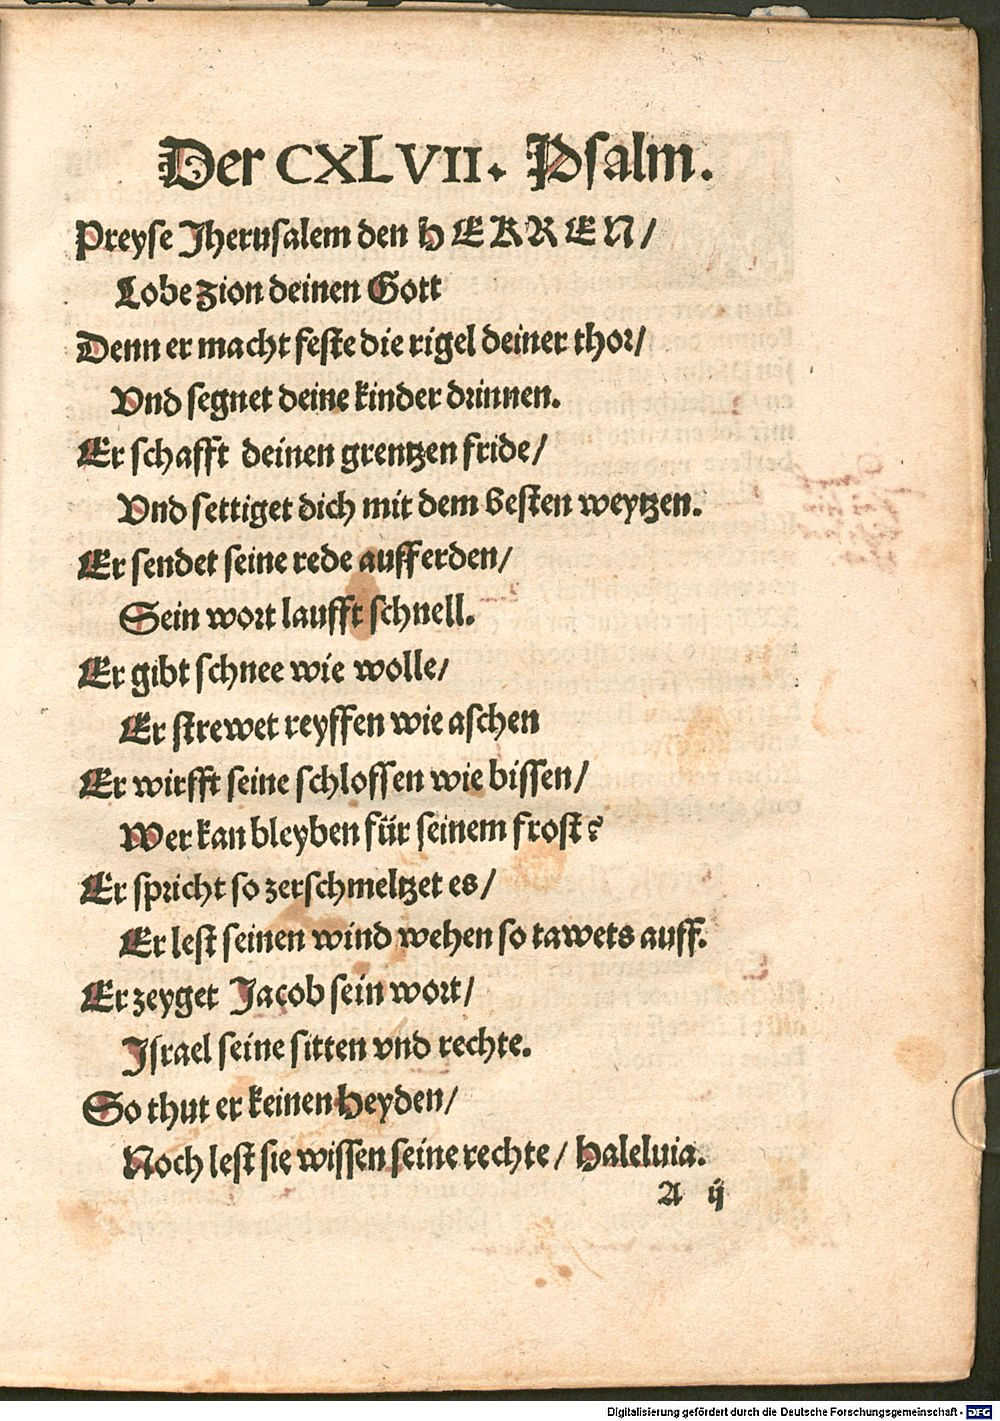 Der CXLVII. Psalm.
Preyse Jherusalem den HERREN/
Lobe Zion deinen Gott
Denn er macht feste die rigel deiner thor/
Vnd segnet deine kinder drinnen.
Er schafft deinen grentzen fride/
Vnd settiget dich mit dem besten weytzen.
Er sendet seine rede aufferden/
Sein wort laufft schnell.
Er gibt schnee wie wolle/
Er strewet reyffen wie aschen
Er wirfft seine schlossen wie bissen/
Wer kan bleyben für seinem frost?
Er spricht so zerschmeltzet es/
Er lest seinen wind wehen so tawets auff.
Er zeyget Jacob sein wort/
Israel seine sitten vnd rechte.
So thut er keinen Heyden/
Noch lest sie wissen seine rechte/ Haleluia.
A ij
Digitalisierung gefördert durch die Deutsche Forschungsgemeinschaft - DFG